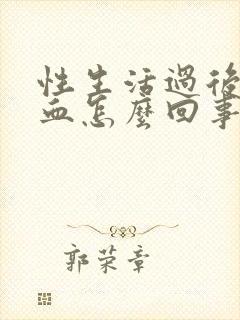 性生活過後
血怎麼回事
郭荣章